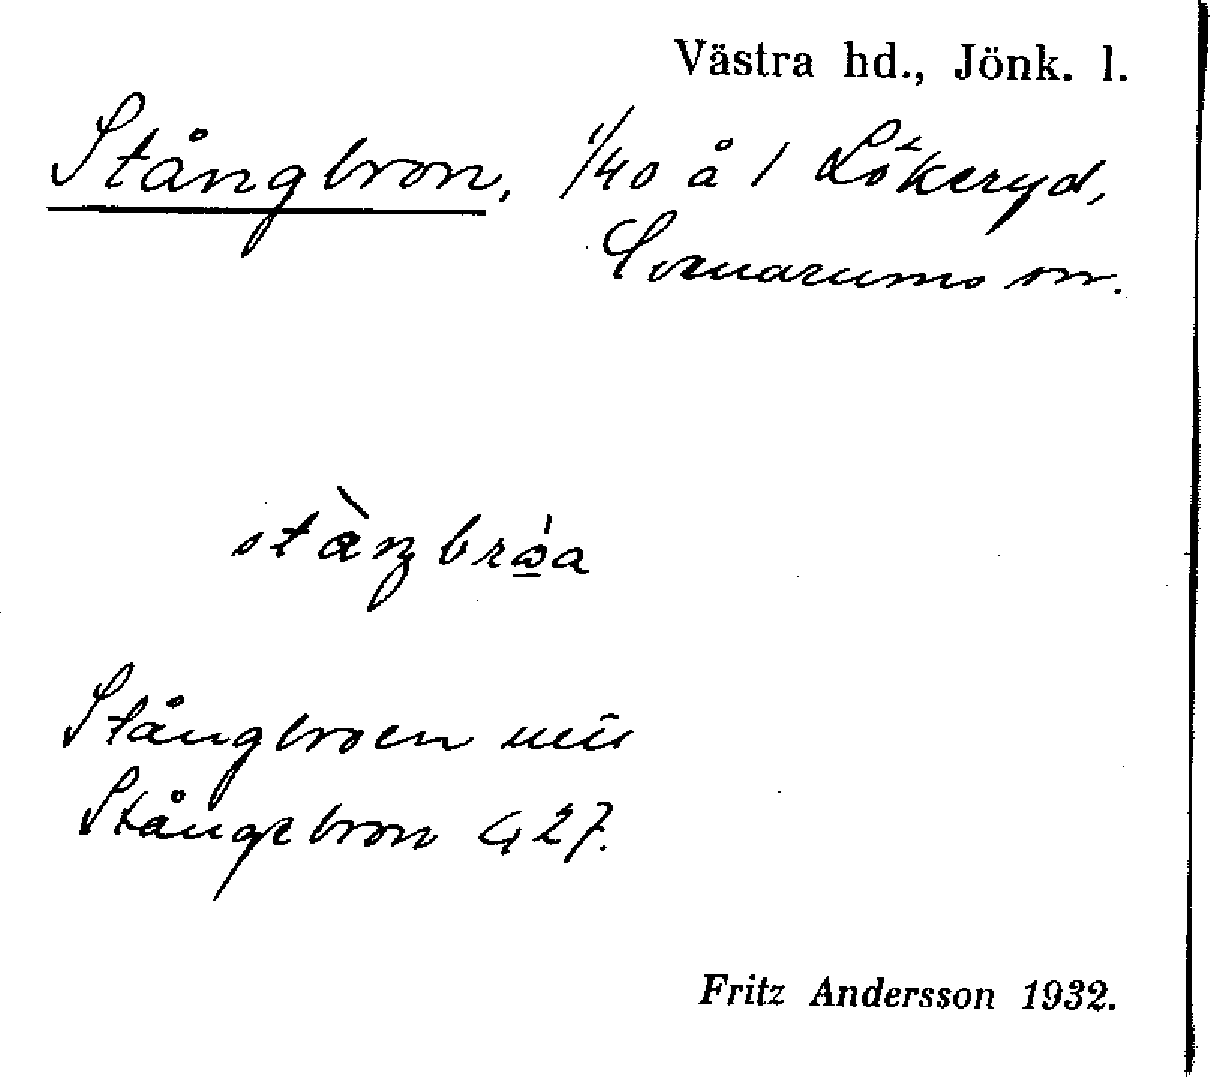 Västra hd., Jönk. l.
Stångbron, 1/40 å 1 Lökeryd,
Svenarums sn.
stàŋbrωa
Stångbroen
Stångebron G 27.
Fritz Andersson 1932.